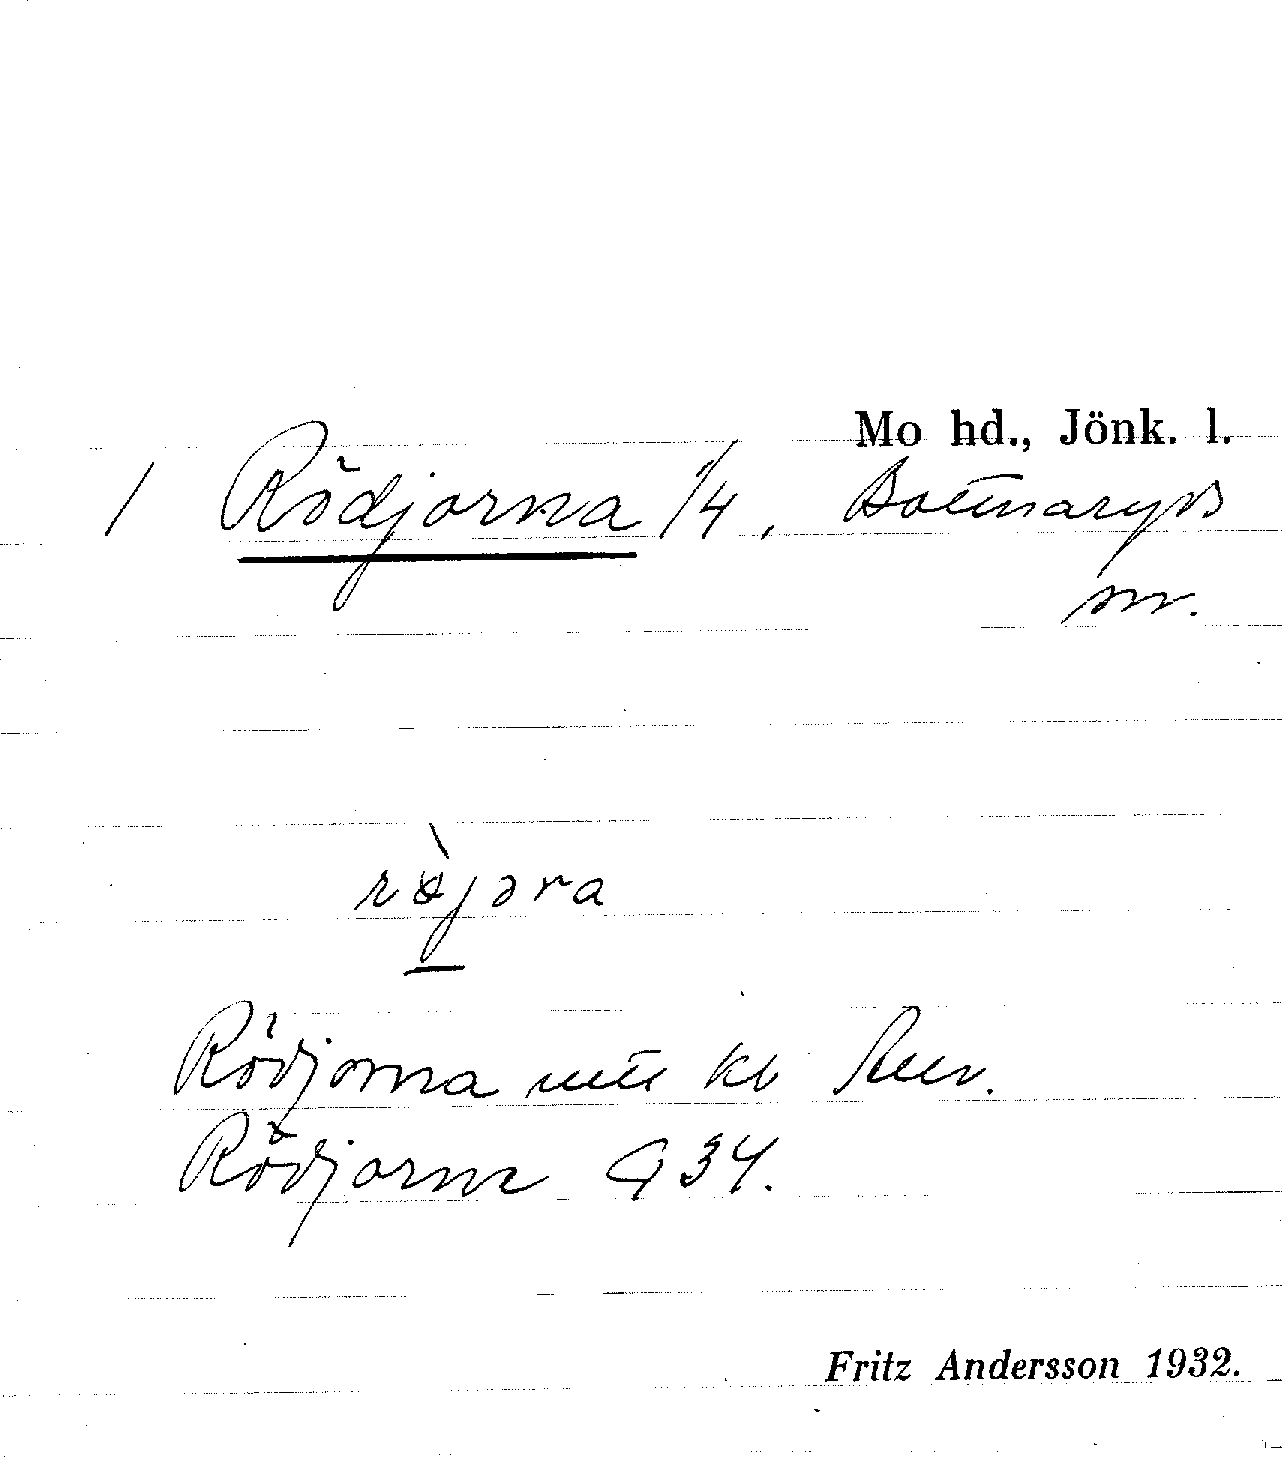 Mo hd., Jönk. l.
1 Rödjorna 1/4, Bottnaryds
sn.
röjəra
Rödjorna
Rödjorna G 34.
Fritz Andersson 1932.